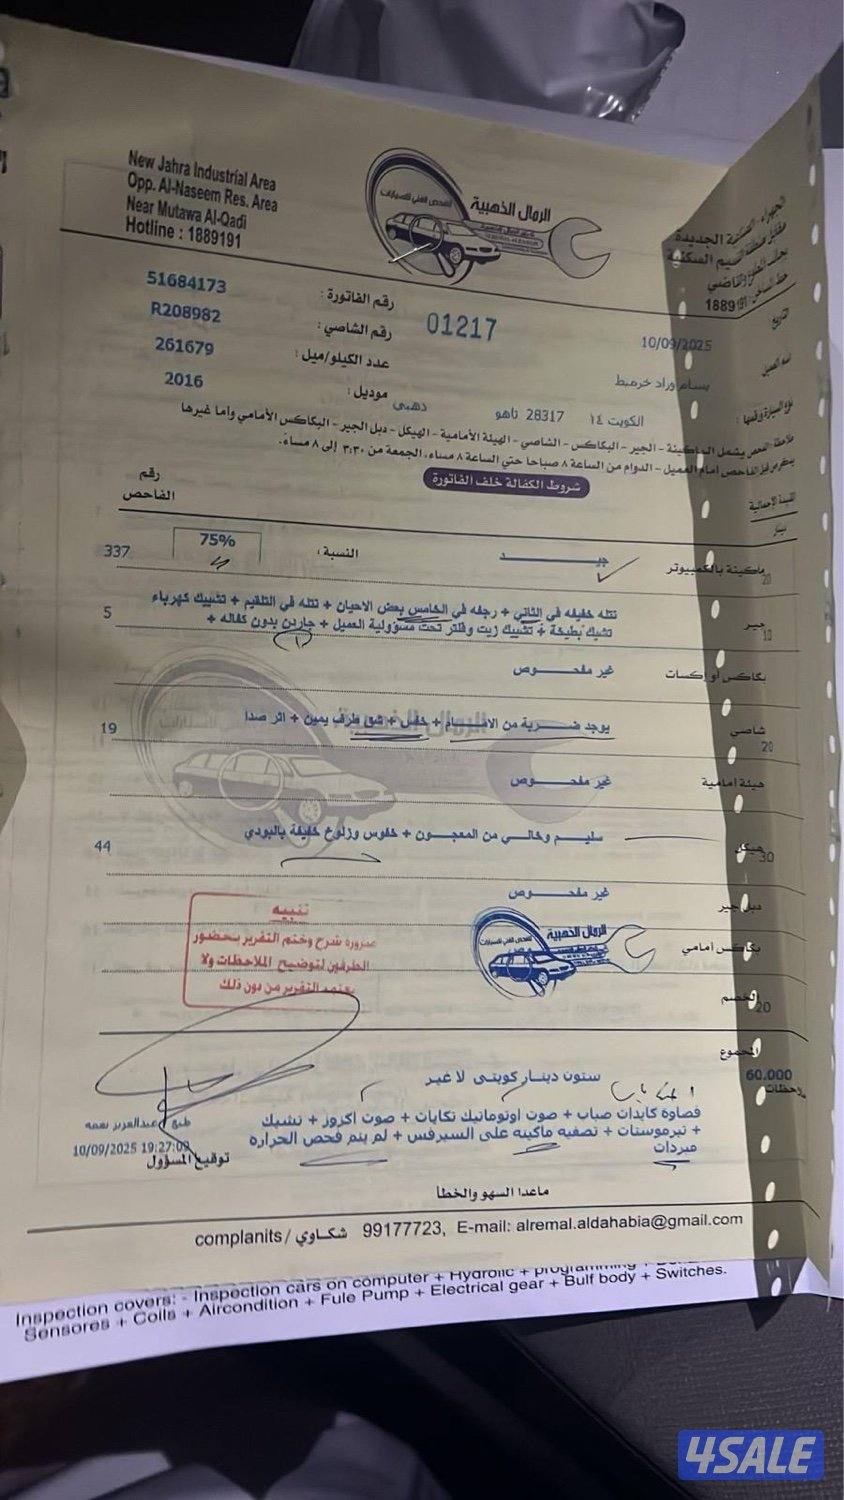 New Jahra Industrial Area
Opp. Al-Naseem Res. Area
Near Mutawa Al-Qadi
Hotline : 1889191
الرمال الذهبية
للفحص الفني للسيارات
الجهراء - السكنية الجديدة
مقابل منطقة النسيم السكنية
1889191
51684173
رقم الفاتورة :
01217
10/09/2025
التاريخ
R208982
رقم الشاصي :
بسام وراد خرميط
اسم العميل
261679
عدد الكيلو/ميل :
الكويت ١٤
28317 تاهو
ذهبي
نوع السيارة ورقمها :
2016
موديل :
ملاحظة: الفحص يشمل الماكينة - الجير - البكاكس - الشاصي - الهيئة الأمامية - الهيكل - دبل الجير - البكاكس الأمامي وأما غيرها
أمام العميل - الدوام من الساعة ٨ صباحا حتي الساعة ٨ مساء. الجمعة من ٣:٣٠ إلى ٨ مساء.
شروط الكفالة خلف الفاتورة
رقم الفاحص
القيمة الإجمالية
دينار
ماكينة بالكمبيوتر
20
جيد
النسبة :
75%
337
جير
10
نتله خفيفه في الثاني + رجفه في الخامس بعض الاحيان + نتله في التلقيم + تشييك كهرباء
تشيك بطيخة + تشييك زيت وفلتر تحت مسؤولية العميل + جاردن بدون كفاله +
5
بكاكس أو إكسات
غير مفحوص
شاصي
20
يوجد ضربة من الامام + خفس + شق طرف يمين + اثر صدا
19
هيئة امامية
غير مفحوص
هيكل
30
سليم وخالي من المعجون + خفوس وزلوخ خفيفة بالبودي
44
دبل جير
غير مفحوص
بكاكس أمامي
الرمال الذهبية
للفحص الفني للسيارات
تنبيه
ضرورة شرح وختم التقرير بحضور
الطرفين لتوضيح الملاحظات ولا
يعتمد التقرير من دون ذلك
الخصم
20
المجموع
60.000
ستون دينار كويتي لا غير
ملاحظات
قصاوة كايدات صباب + صوت اوتوماتيك تكايات + صوت اكزوز + تشيك
+ تيرموستات + تصفيه ماكينه على السيرفس + لم يتم فحص الحراره
مبردات
طبع / عبدالعزيز نعمه
10/09/2025 19:27:09
توقيع المسؤول
ماعدا السهو والخطأ
complanits / شكاوي 99177723, E-mail: alremal.aldahabia@gmail.com
Inspection covers: - Inspection cars on computer + Hydrolic + programming +
Sensores + Coils + Aircondition + Fule Pump + Electrical gear + Bulf body + Switches.
4SALE